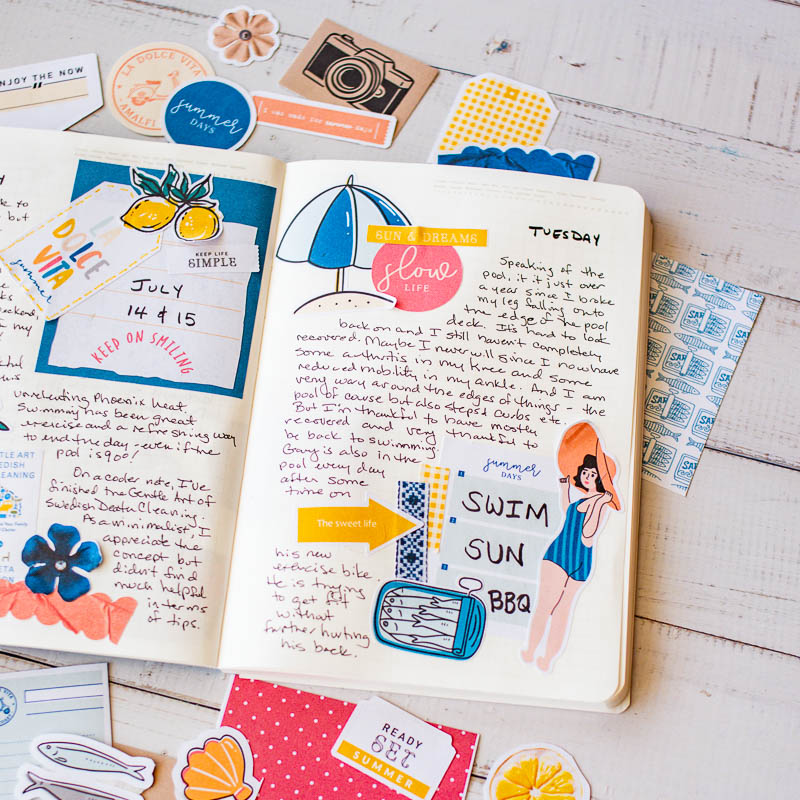 ENJOY THE NOW
LA DOLCE VITA
AMALFI
summer
DAYS
LA
DOLCE
VITA
summer
KEEP LIFE
SIMPLE
JULY
14 & 15
KEEP ON SMILING
but
my
unrelenting Phoenix heat.
Swimming has been great
exercise and a refreshing way
to end the day - even if the
pool is 90°!
On a cooler note, I've
finished the Gentle Art of
Swedish Death Cleaning.
As a minimalist, I
appreciate the
concept but
didn't find
much helpful
in terms
of tips.
SUN & DREAMS
slow
LIFE
TUESDAY
Speaking of the
pool, it it just over
a year since I broke
my leg falling onto
the edge of the pool
deck. It's hard to look
back on and I still haven't completely
recovered. Maybe I never will since I now have
some arthritis in my knee and some
reduced mobility in my ankle. And I am
very wary around the edges of things - the
pool of course but also steps, curbs etc.
But I'm thankful to have mostly
recovered and very thankful to
be back to swimming.
Gary is also in the
pool every day
after some
time on
his new
exercise bike.
He is trying
to get fit
without
further hurting
his back.
The sweet life
summer
DAYS
1
SWIM
2
SUN
BBQ
SAR
READY
SET
SUMMER